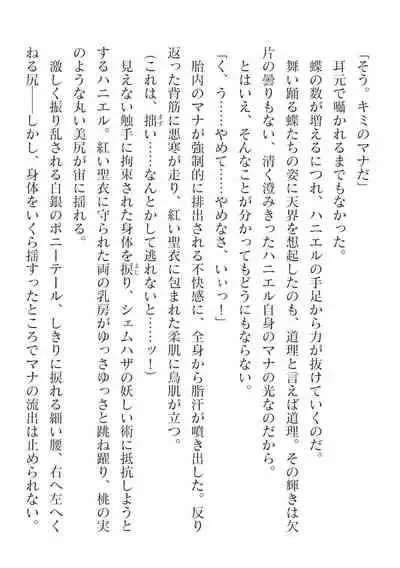 「そう。キミのマナだ」
耳元で囁かれるまでもなかった。
蝶の数が増えるにつれ、ハニエルの手足から力が抜けていくのだ。
舞い踊る蝶たちの姿に天界を想起したのも、道理と言えば道理。その輝きは欠
片の曇りもない、清く澄みきったハニエル自身のマナの光なのだから。
とはいえ、そんなことが分かってもどうにもならない。
「く、う……やめて……やめなさ、いぃっ！」
胎内のマナが強制的に排出される不快感に、全身から脂汗が噴き出した。反り
返った背筋に悪寒が走り、紅い聖衣に包まれた柔肌に鳥肌が立つ。
（これは、拙い……なんとかして逃れないと……ッ！）
見えない触手に拘束された身体を捩り、シェムハザの妖しい術に抵抗しようと
するハニエル。紅い聖衣に守られた両の乳房がゆっさゆっさと跳ね躍り、桃の実
のような丸い美尻が宙に揺れる。
激しく振り乱される白銀のポニーテール、しきりに捩れる細い腰、右へ左へく
ねる尻――しかし、身体をいくら揺すったところでマナの流出は止められない。